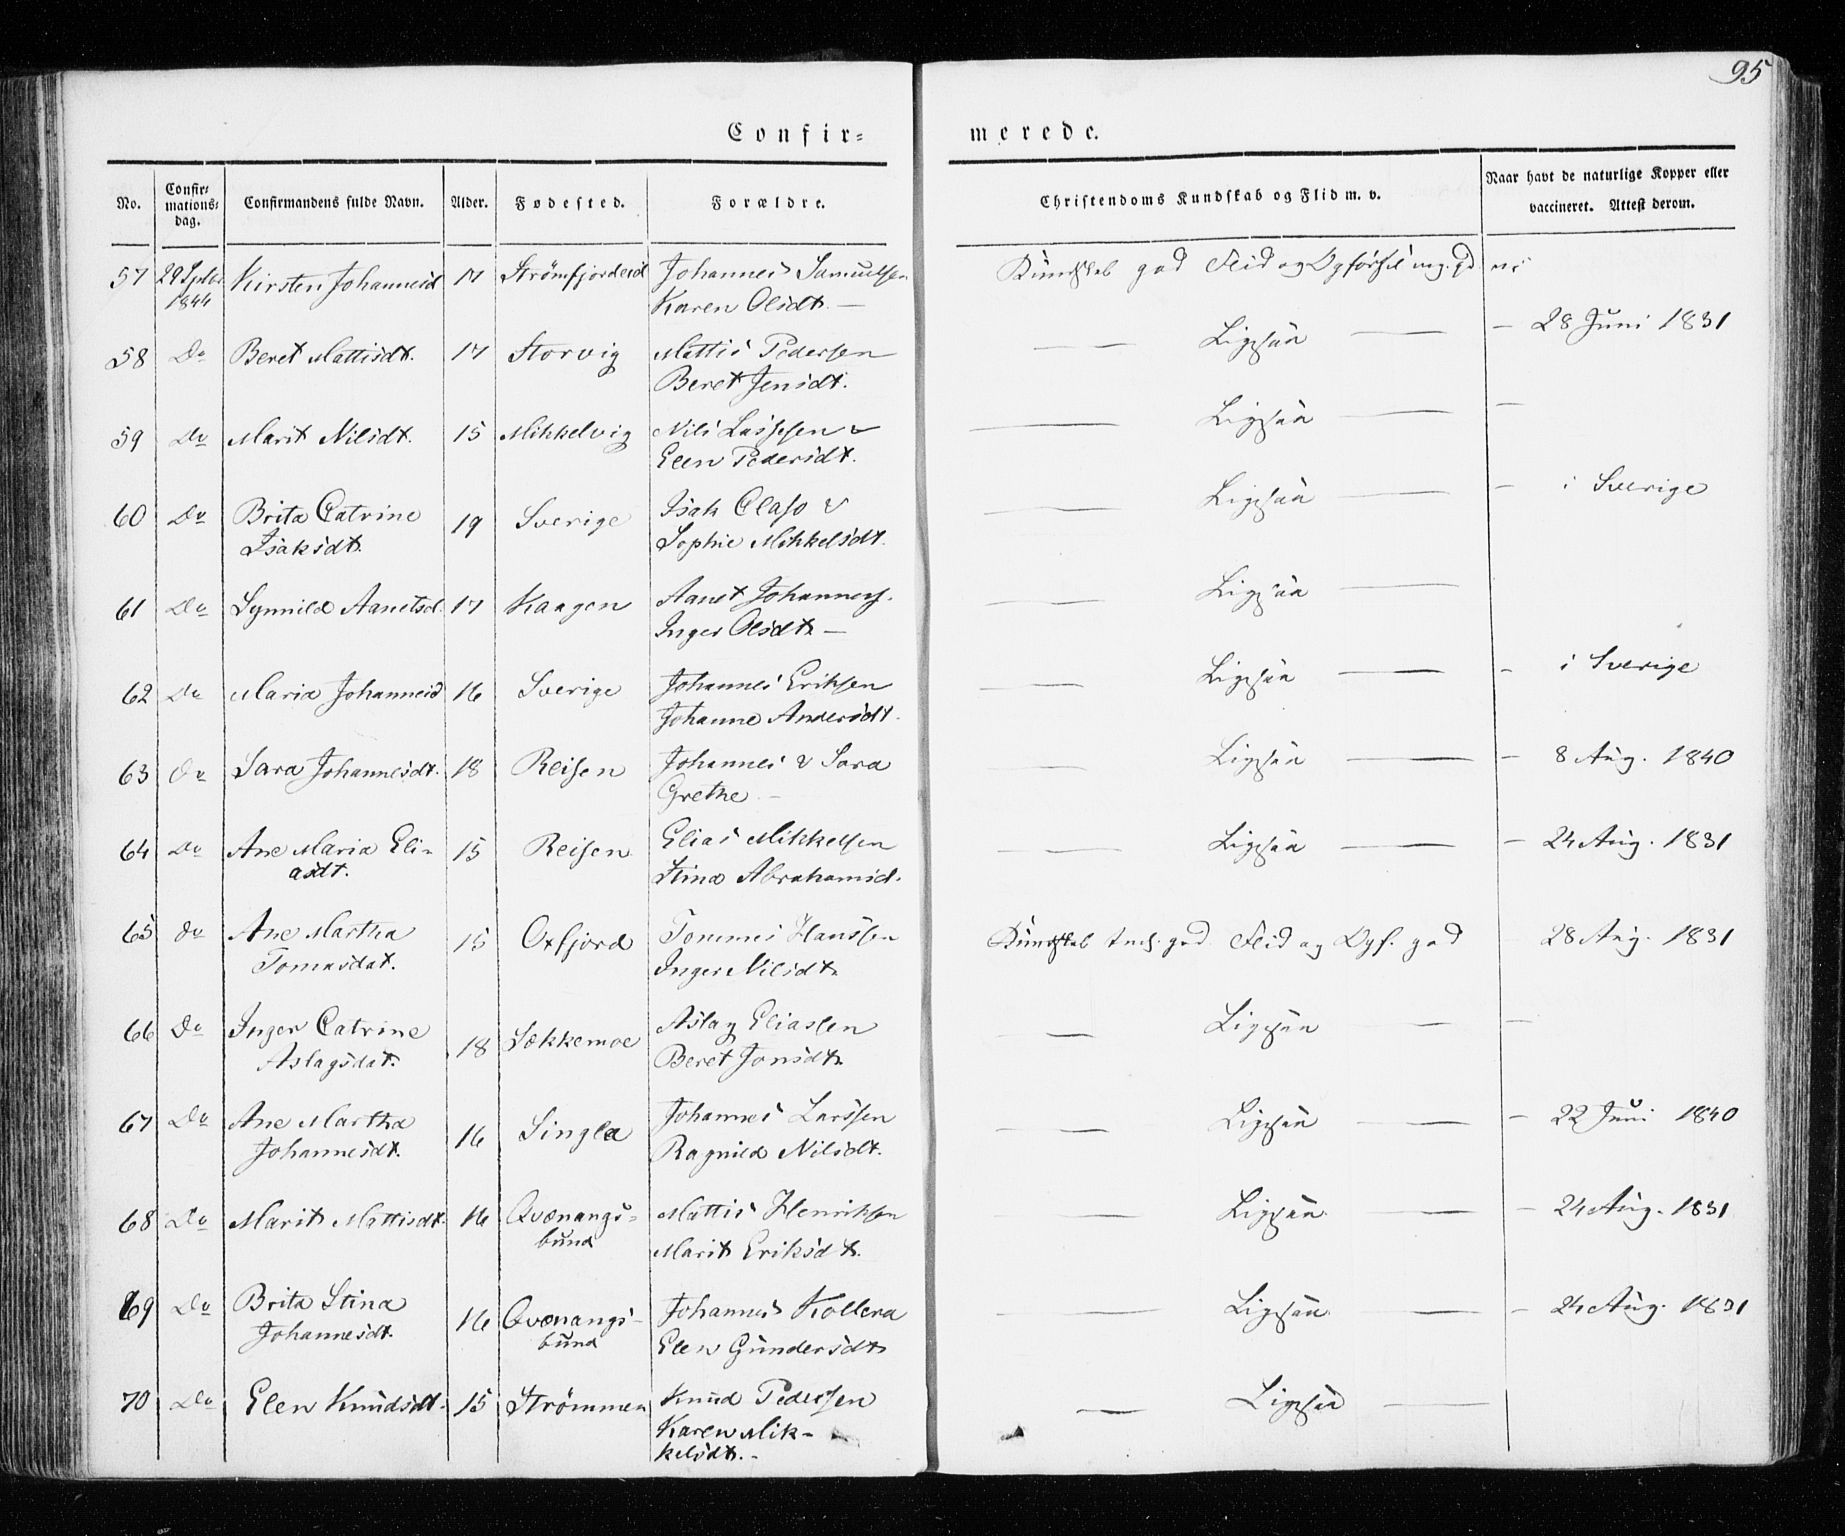 95
Confir=
merede.
No.
Confir=
mations=
dag.
Confirmandens fulde Navn.
Alder.
Fødested.
Forældre.
Christendoms Kundskab og Flid m. v.
Naar havt de naturlige Kopper eller
vaccineret. Attest derom.
57 29 Septbr 1844 Kirsten Johannesd 17 Strømfjordeid Johannes Samuelsen Kundskab god Flid og Opførsel meg. gd
Karen Olsdt. —
58 Do Beret Mattisdt. 17 Storvig Mattis Pedersen — Ligesaa — — 28 Juni 1831
Beret Jensdt.
59 Do Marit Nilsdt. 15 Mikkelvig Nils Lassesen & — Ligesaa — —
Elen Pedersdt.
60 Do Brita Catrine 19 Sverige Isak Claso & — Ligesaa — — i Sverige
Isaksdt. Sophie Mikkelsdt.
61 Do Synnild Aanetsd. 17 Kaagen Aanet Johanness. — Ligesaa —
Inger Olsdt. —
62 Do Maria Johannesd 16 Sverige Johannes Eriksen — Ligesaa — - i Sverige
Johanne Andersdt.
63 Do Sara Johannesdt. 18 Reisen Johannes & Sara — Ligesaa — — 8 Aug. 1840
Grethe —
64 Do Ane Maria Eli- 15 Reisen Elias Mikkelsen — Ligesaa — — 24 Aug. 1831
asdt. Stina Abrahamsd.
65 Do Ane Martha 15 Oxfjord Tommes Hanssen Kundskab temml. god Flid og Opf. god 28 Aug. 1831
Tomasdat. Inger Nilsdt.
66 Do Inger Catrine 18 Sækkemoe Aslag Eliassen — Ligesaa — —
Aslagsdat. Beret Jonsdt.
67 Do Ane Martha 16 Singla Johannes Larssen — Ligesaa — — 22 Juni 1840
Johannesdt. Ragnild Nilsdt.
68 Do Marit Mattisdt. 16 Qvænangs- Mattis Henriksen — Ligesaa — — 24 Aug. 1831
bund Marit Eriksdt.
69 Do Brita Stina 16 Qvænangs- Johannes Kollera — Ligesaa — — 24 Aug. 1831
Johannesdt. bund Elen Gundersdt
70 Do Elen Knudsdt. 15 Strømmen Knud Pedersen — Ligesaa —
Karen Mik-
kelsdt. -